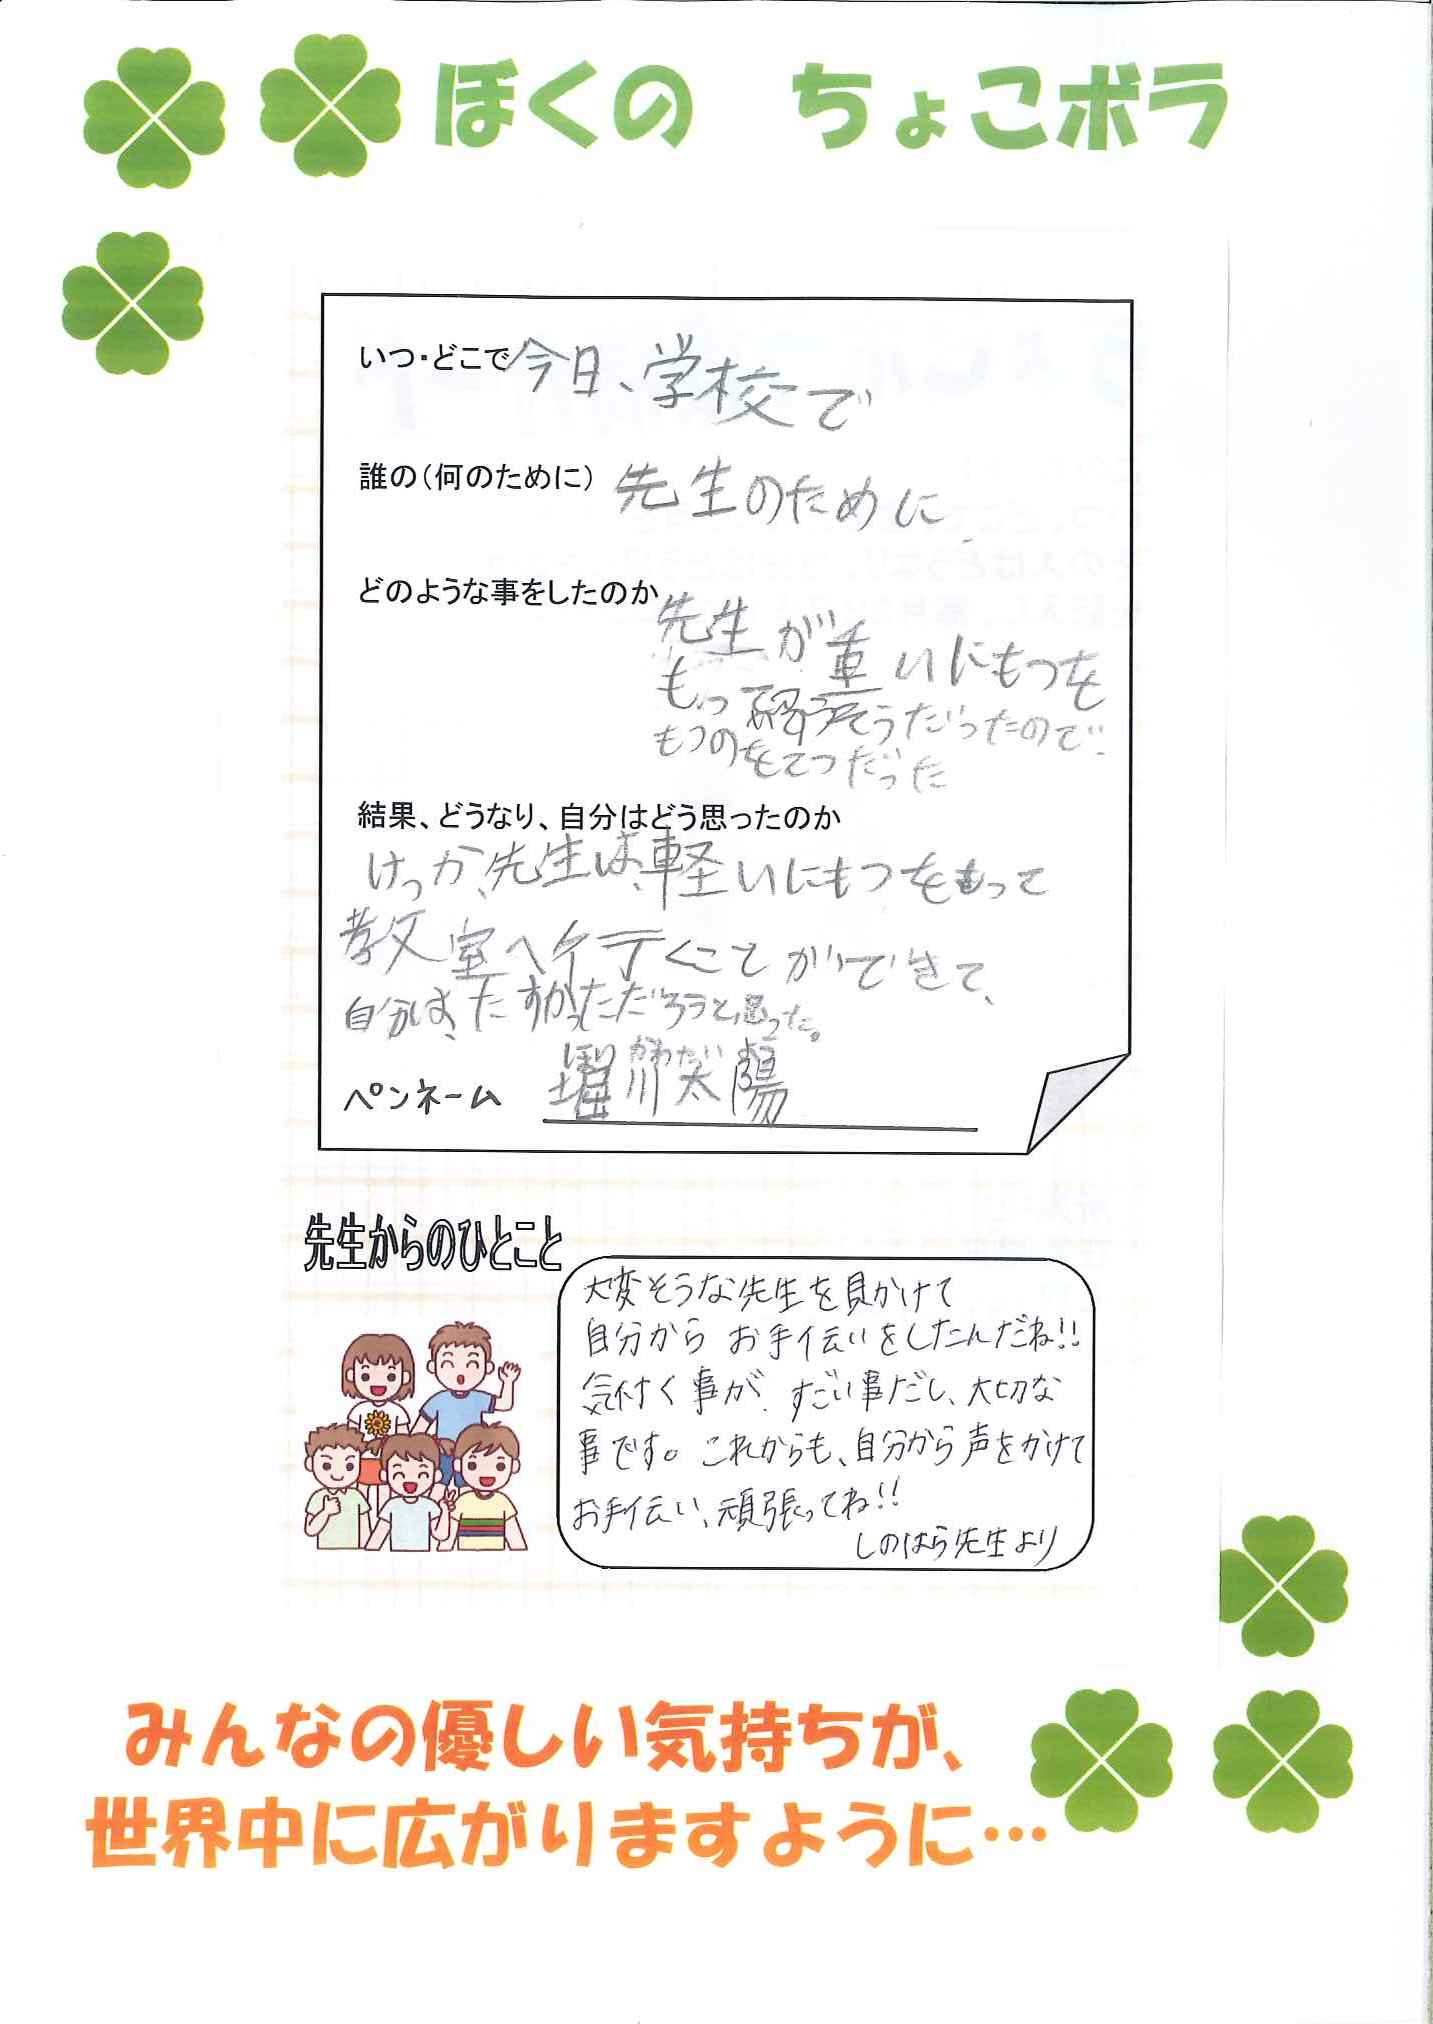 ぼくの　ちょこボラ
いつ・どこで 今日、学校で
誰の(何のために) 先生のために
どのような事をしたのか
先生が重いにもつを
もって そうだったので
もつのをてつだった
結果、どうなり、自分はどう思ったのか
けっか、先生は、軽いにもつをもって
教室へ行くことができて、
自分は、たすかっただろうと思った。
ほりかわたいよう
ペンネーム 堀川太陽
先生からのひとこと
大変そうな先生を見かけて
自分から お手伝いをしたんだね!!
気付く事が、すごい事だし、大切な
事です。これからも、自分から声をかけて
お手伝い、頑張ってね!!
しのはら先生より
みんなの優しい気持ちが、
世界中に広がりますように…